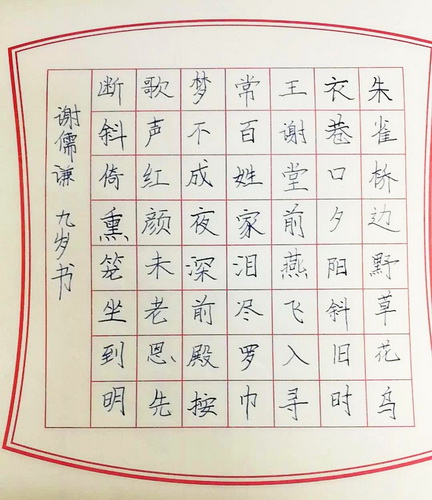 朱雀桥边野草花鸟
衣巷口夕阳斜旧时
王谢堂前燕飞入寻
常百姓家泪尽罗巾
梦不成夜深前殿按
歌声红颜未老恩先
断斜倚熏笼坐到明
谢儒谦 九岁书